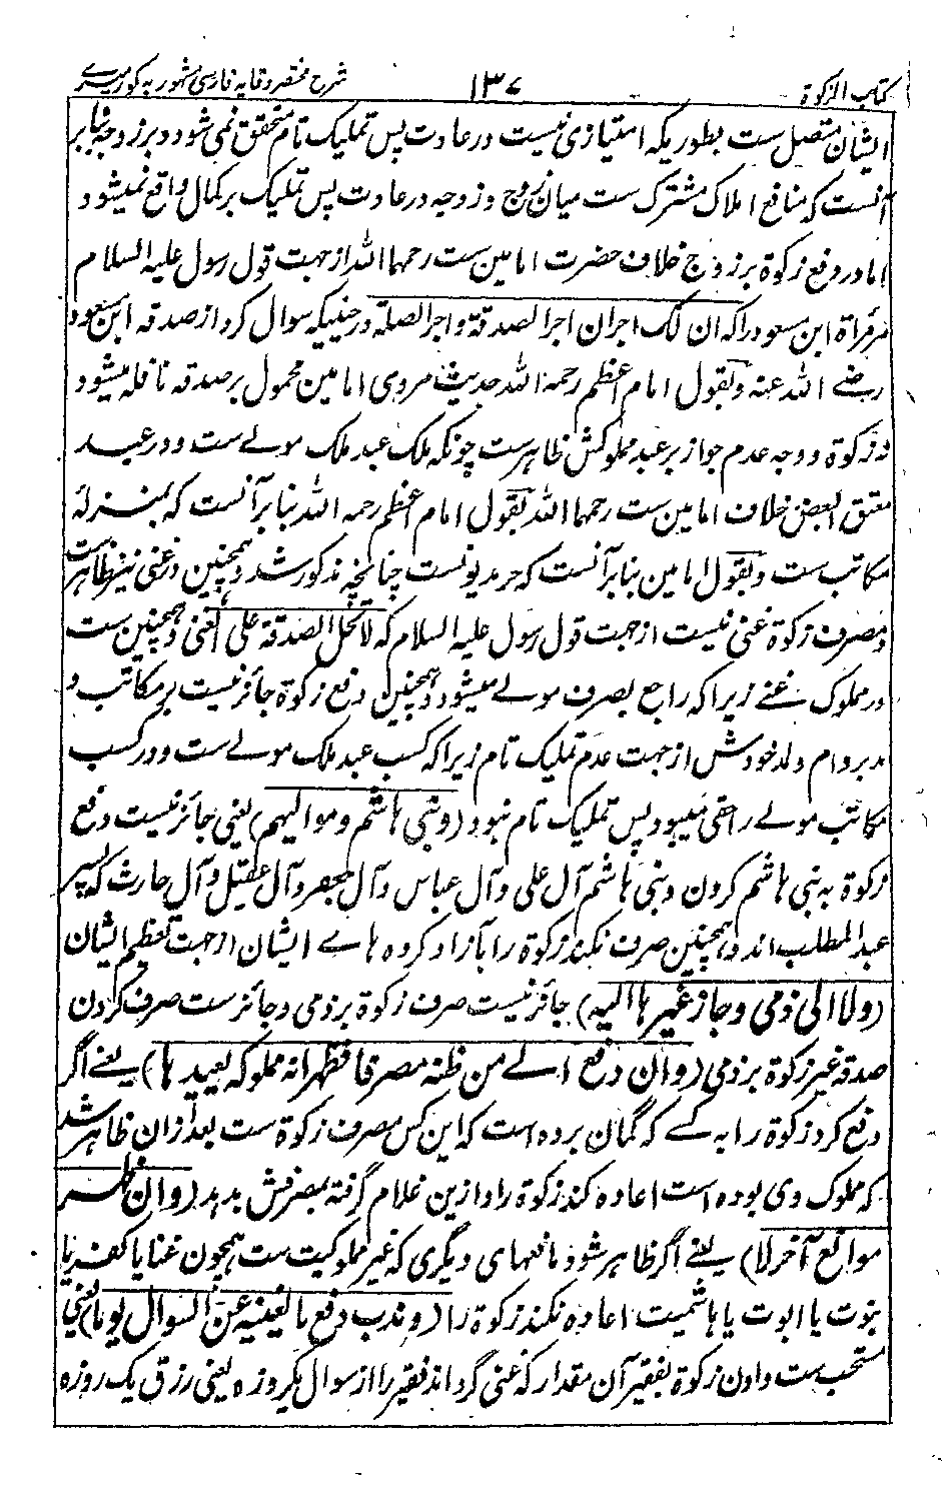 کتاب الزکوة ۱۳۷ شرح مختصر وقایه فارسی مشهور به کور میری
ایشان متصل ست بطوریکه امتیازی نیست در عادت پس تملیک تام متحقق نمی شود و بر زوجه بنابر
آنست که منافع املاک مشترک ست میان زوج و زوجه در عادت پس تملیک بر کمال واقع نمیشود
اما در دفع زکوة بر زوج خلاف حضرت امامین ست رحمهما الله از جهت قول رسول علیه السلام
مر مرأة ابن مسعود را که ان لک اجران اجر الصدقة و اجر الصلة در حینیکه سوال کرد از صدقه ابن مسعود
رضے الله عنه و بقول امام اعظم رحمه الله حدیث مروی امامین محمول بر صدقه نافله میشود
نه زکوة و وجه عدم جواز بر عبد مملوکش ظاهرست چونکه ملک عبد ملک مولے ست و در عبد
معتق البعض خلاف امامین ست رحمهما الله بقول امام اعظم رحمه الله بنابر آنست که بمنزلهٔ
مکاتب ست و بقول امامین بنابر آنست که حر مدیونست چنانچه مذکور شد و همچنین در غنی نیز ظاهرست
و مصرف زکوة غنی نیست از جهت قول رسول علیه السلام که لا تحل الصدقة علی الغنی و همچنین ست
در مملوک غنے زیرا که راجع بصرف مولے میشود و همچنین دفع زکوة جائز نیست بر مکاتب و
مدبر و ام ولد خودش از جهت عدم تملیک تام زیرا که کسب عبد ملک مولے ست و در کسب
مکاتب مولے را حقی میبود پس تملیک تام نبود (و بنی هاشم و موالیهم) یعنی جائز نیست دفع
زکوة به بنی هاشم کردن و بنی هاشم آل علی و آل عباس و آل جعفر و آل عقیل و آل حارث که پسر
عبد المطلب اند و همچنین صرف نکند زکوة را بآزاد کرده هاے ایشان از جهت تعظیم ایشان
(ولا الی ذمی و جاز غیرها الیه) جائز نیست صرف زکوة بر ذمی و جائز ست صرف کردن
صدقه غیر زکوة بر ذمی (وان دفع الے من ظنه مصرفا فظهر انه مملوکه یعیدها) یعنے اگر
دفع کرد زکوة را به کسے که گمان برده است که این کس مصرف زکوة ست بعد ازان ظاهر شد
که مملوک وی بوده است اعاده کند زکوة را و ازین غلام گرفته بمصرفش بدهد (وان ظهر
موانع آخر لا) یعنے اگر ظاهر شود مانعهای دیگری که غیر مملوکیت ست همچون غنا یا کفر یا
بنوت یا ابوت یا هاشمیت اعاده نکند زکوة را (و ندب دفع ما یغنیه عن السوال یوما) یعنی
مستحب ست دادن زکوة بفقیر آن مقدار که غنی گرداند فقیر را از سوال یکروزه یعنی رزق یک روزه